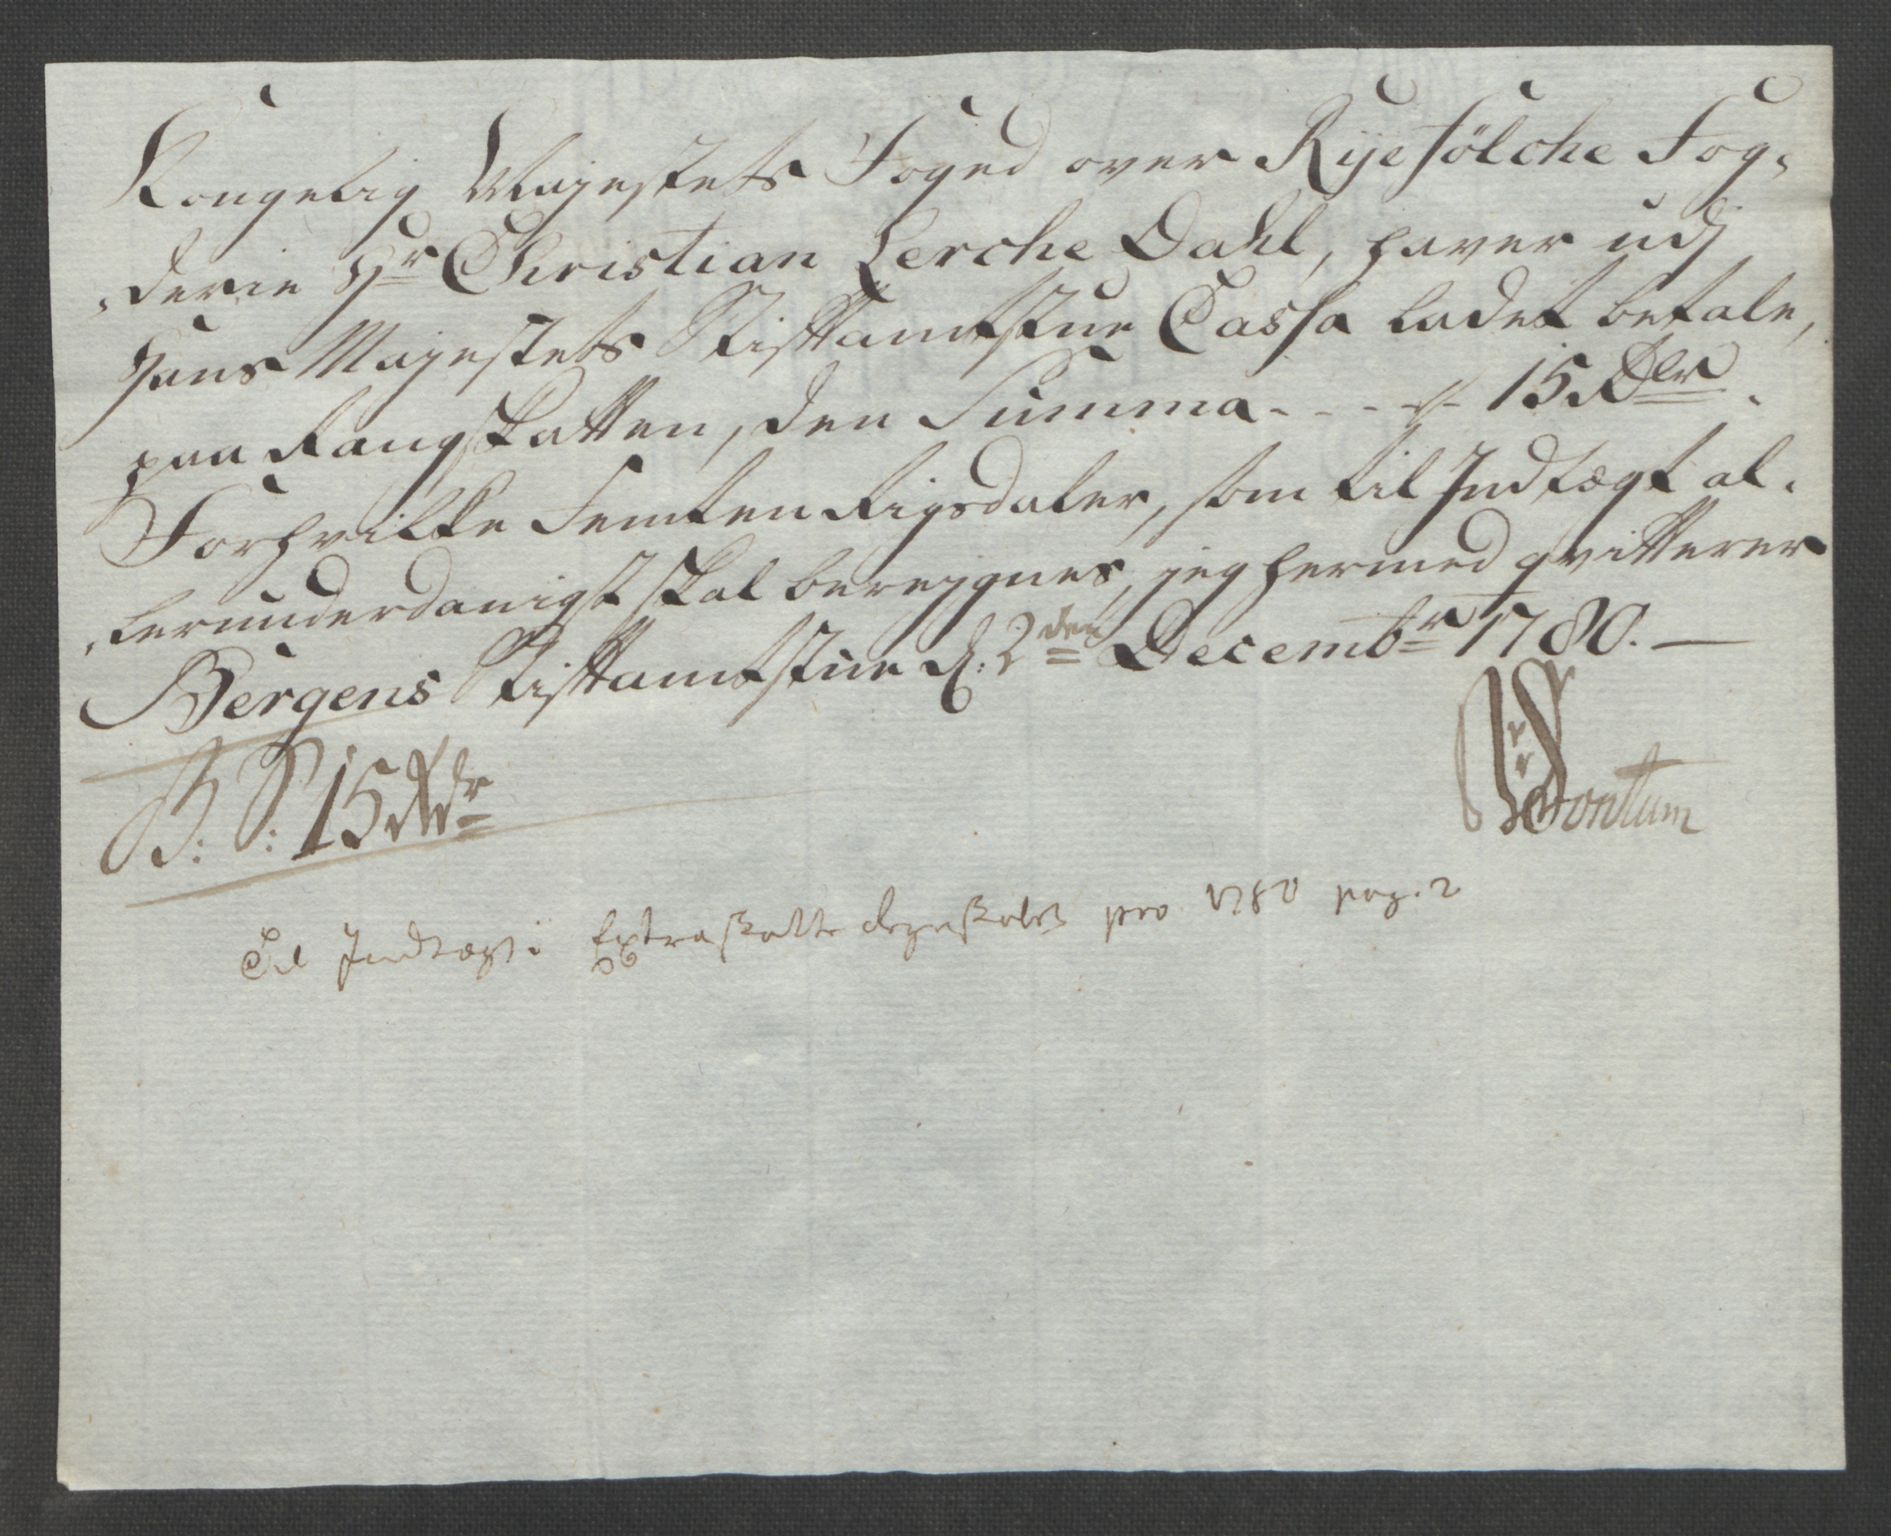 Kongelig Majestets Foged over Ryefölche Fog-
derie Hr Christian Lerche Dahl, haver udj
Hans Majestets Stiftamtstue Cassa ladet betale,
paa Rangskatten, den Summa - - - - 15 Rdlr.
Forhvilke Femten Rigsdaler, som til Indtægt al-
lerunderdanigst skal beregnes, jeg hermed qvitterer
Bergens Stiftamtstue d: 2den Decembr 1780. —
B: S: 15 Rdr
Til Indtægt i Extraskatte Regnskabet pro 1780 pag. 2